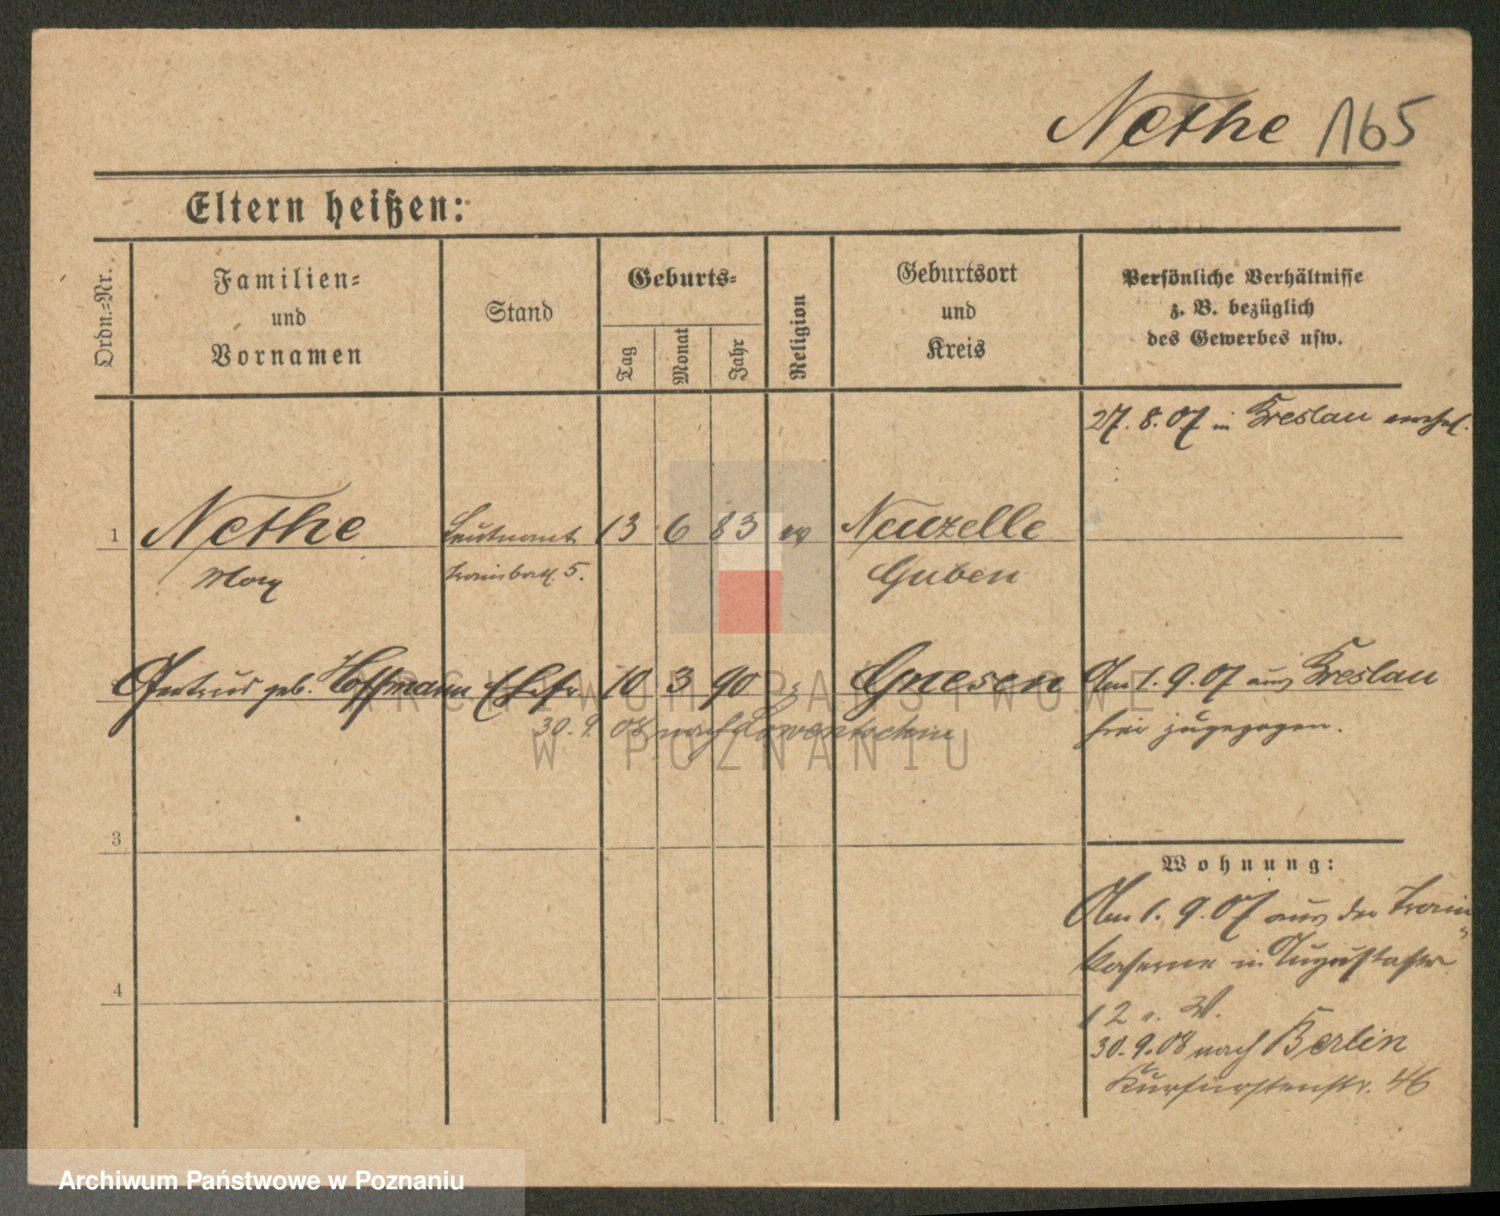 Nethe 165
Eltern heißen:
Ordn.-Nr.
Familien-
und
Vornamen
Stand
Geburts-
Tag
Monat
Jahr
Religion
Geburtsort
und
Kreis
Persönliche Verhältnisse
z. B. bezüglich
des Gewerbes usw.
27. 8. 07 in Breslau
1 Nethe Leutnant 13 6 83 ev Neuzelle
Max Trainbatl. 5. Guben
Gertrud geb. Hoffmann Ehefr 10 3 90 Gnesen Am 1. 9. 07 aus Breslau
30. 9. 08 nach
hier zugezogen.
3
Wohnung:
Am 1. 9. 07 aus der Train-
kaserne in Augustastr
12 W.
4
30. 9. 08 nach Berlin
Kurfürstenstr. 46
ARCHIWUM PAŃSTWOWE
W POZNANIU
Archiwum Państwowe w Poznaniu